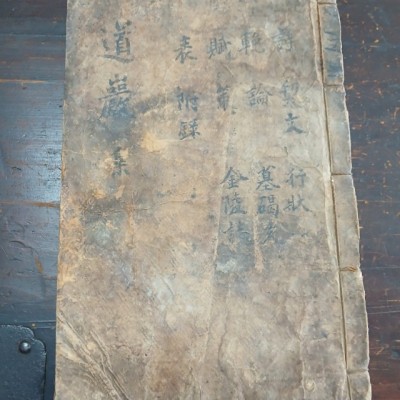 詩 祭文 行狀
輓 論 墓碣
賦 金
表 附錄
道巖集